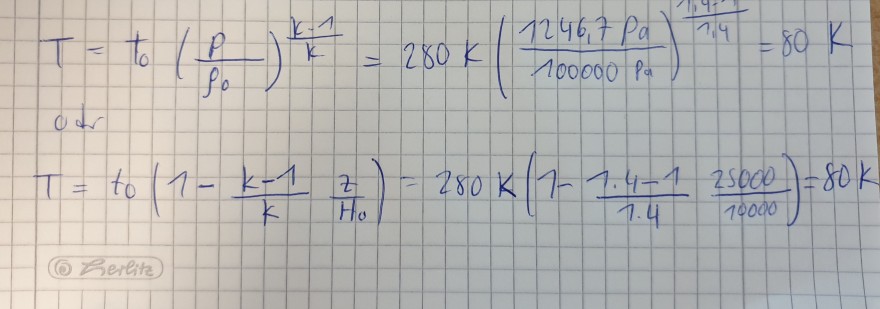 T = t₀ (P/P₀)^((k-1)/k) = 280 K (1246,7 Pa / 100000 Pa)^((1,4-1)/1,4) = 80 K
odr
T = t₀ (1 - (k-1)/k z/H₀) = 280 K (1 - (1.4-1)/1.4 25000/10000) = 80 K
Herlitz